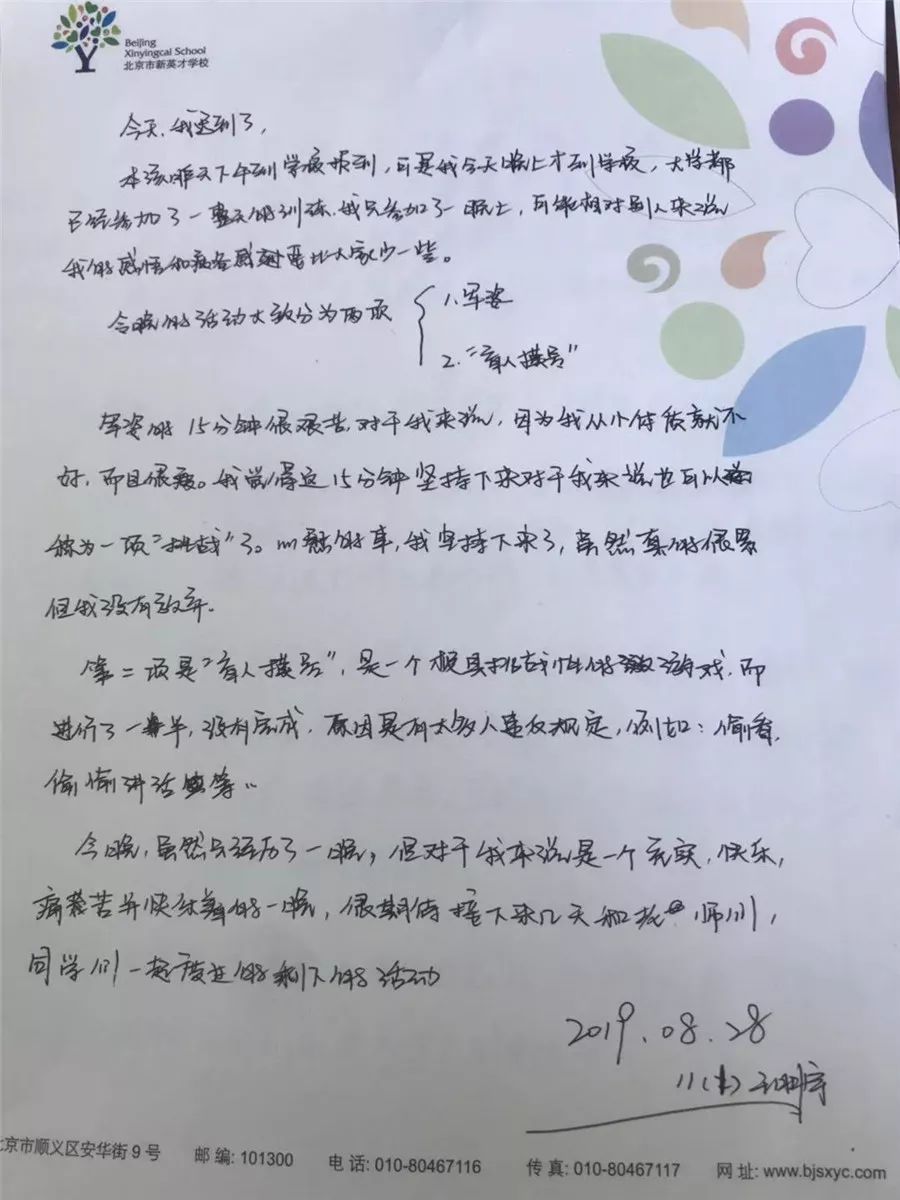 Beijing
Xinyingcai School
北京市新英才学校
今天,我迟到了,
本该昨天下午到学校报到,可是我今天晚上才到学校,大家都
已经参加了一整天的训练,我只参加了一晚上,可能相对别人来说
我的感悟和痛苦感都要比大家少一些。
今晚的活动大致分为两项
1.军姿
2.“盲人摸号”
军姿的15分钟很艰苦,对于我来说,因为我从小体质就不
好,而且很瘦。我觉得这15分钟坚持下来对于我来说也可以
称为一项“挑战”了。的事,我坚持下来了,虽然真的很累
但我没有放弃。
第二项是“盲人摸号”,是一个极具挑战性的游戏,而
进行了一半,没有完成,原因是有太多人违反规定,例如:偷看,
偷偷讲话等..
今晚,虽然只经历了一晚,但对于我来说是一个充实,快乐,
痛苦并快乐的一晚,很期待接下来几天和师们,
同学们一起度过的剩下的活动
2019.08.28
北京市顺义区安华街9号 邮编: 101300 电话: 010-80467116 传真: 010-80467117 网址: www.bjsxyc.com